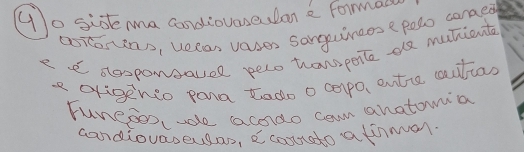 4) o sistema cardiovascular é formado
artérias, veias vasos sanguíneos e pelo coração
e é responsavel pelo transporte de nutriente
e oxigênio para todo o corpo, entre outras
Funções, de acordo com anatomia
cardiovascular, é correto afirmar.